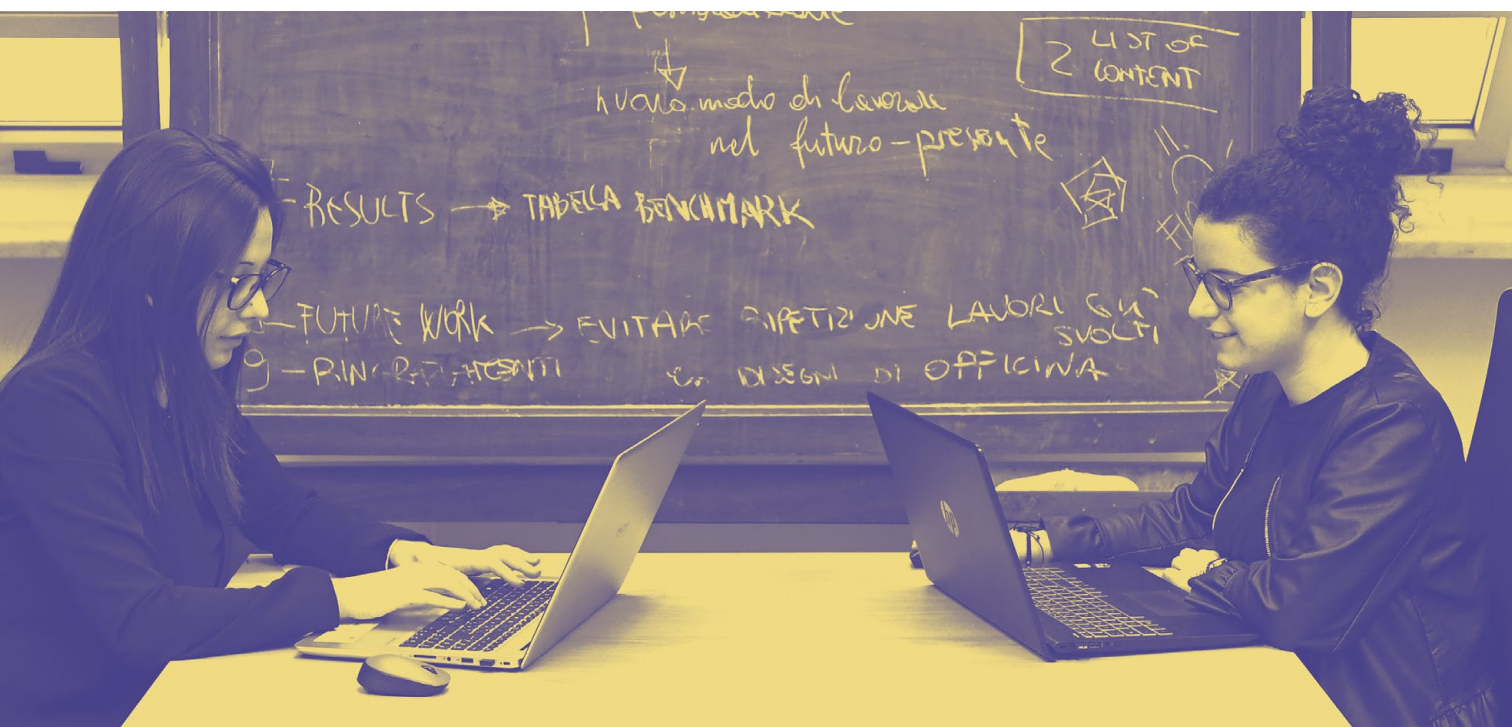 2 LIST OF
CONTENT
nuovo modo di lavorare
nel futuro-presente
- RESULTS → TABELLA BENCHMARK
- FUTURE WORK → EVITARE RIPETIZIONE LAVORI GIÀ
SVOLTI
9 - RINGRAZIAMENTI DISEGNI DI OFFICINA
hp